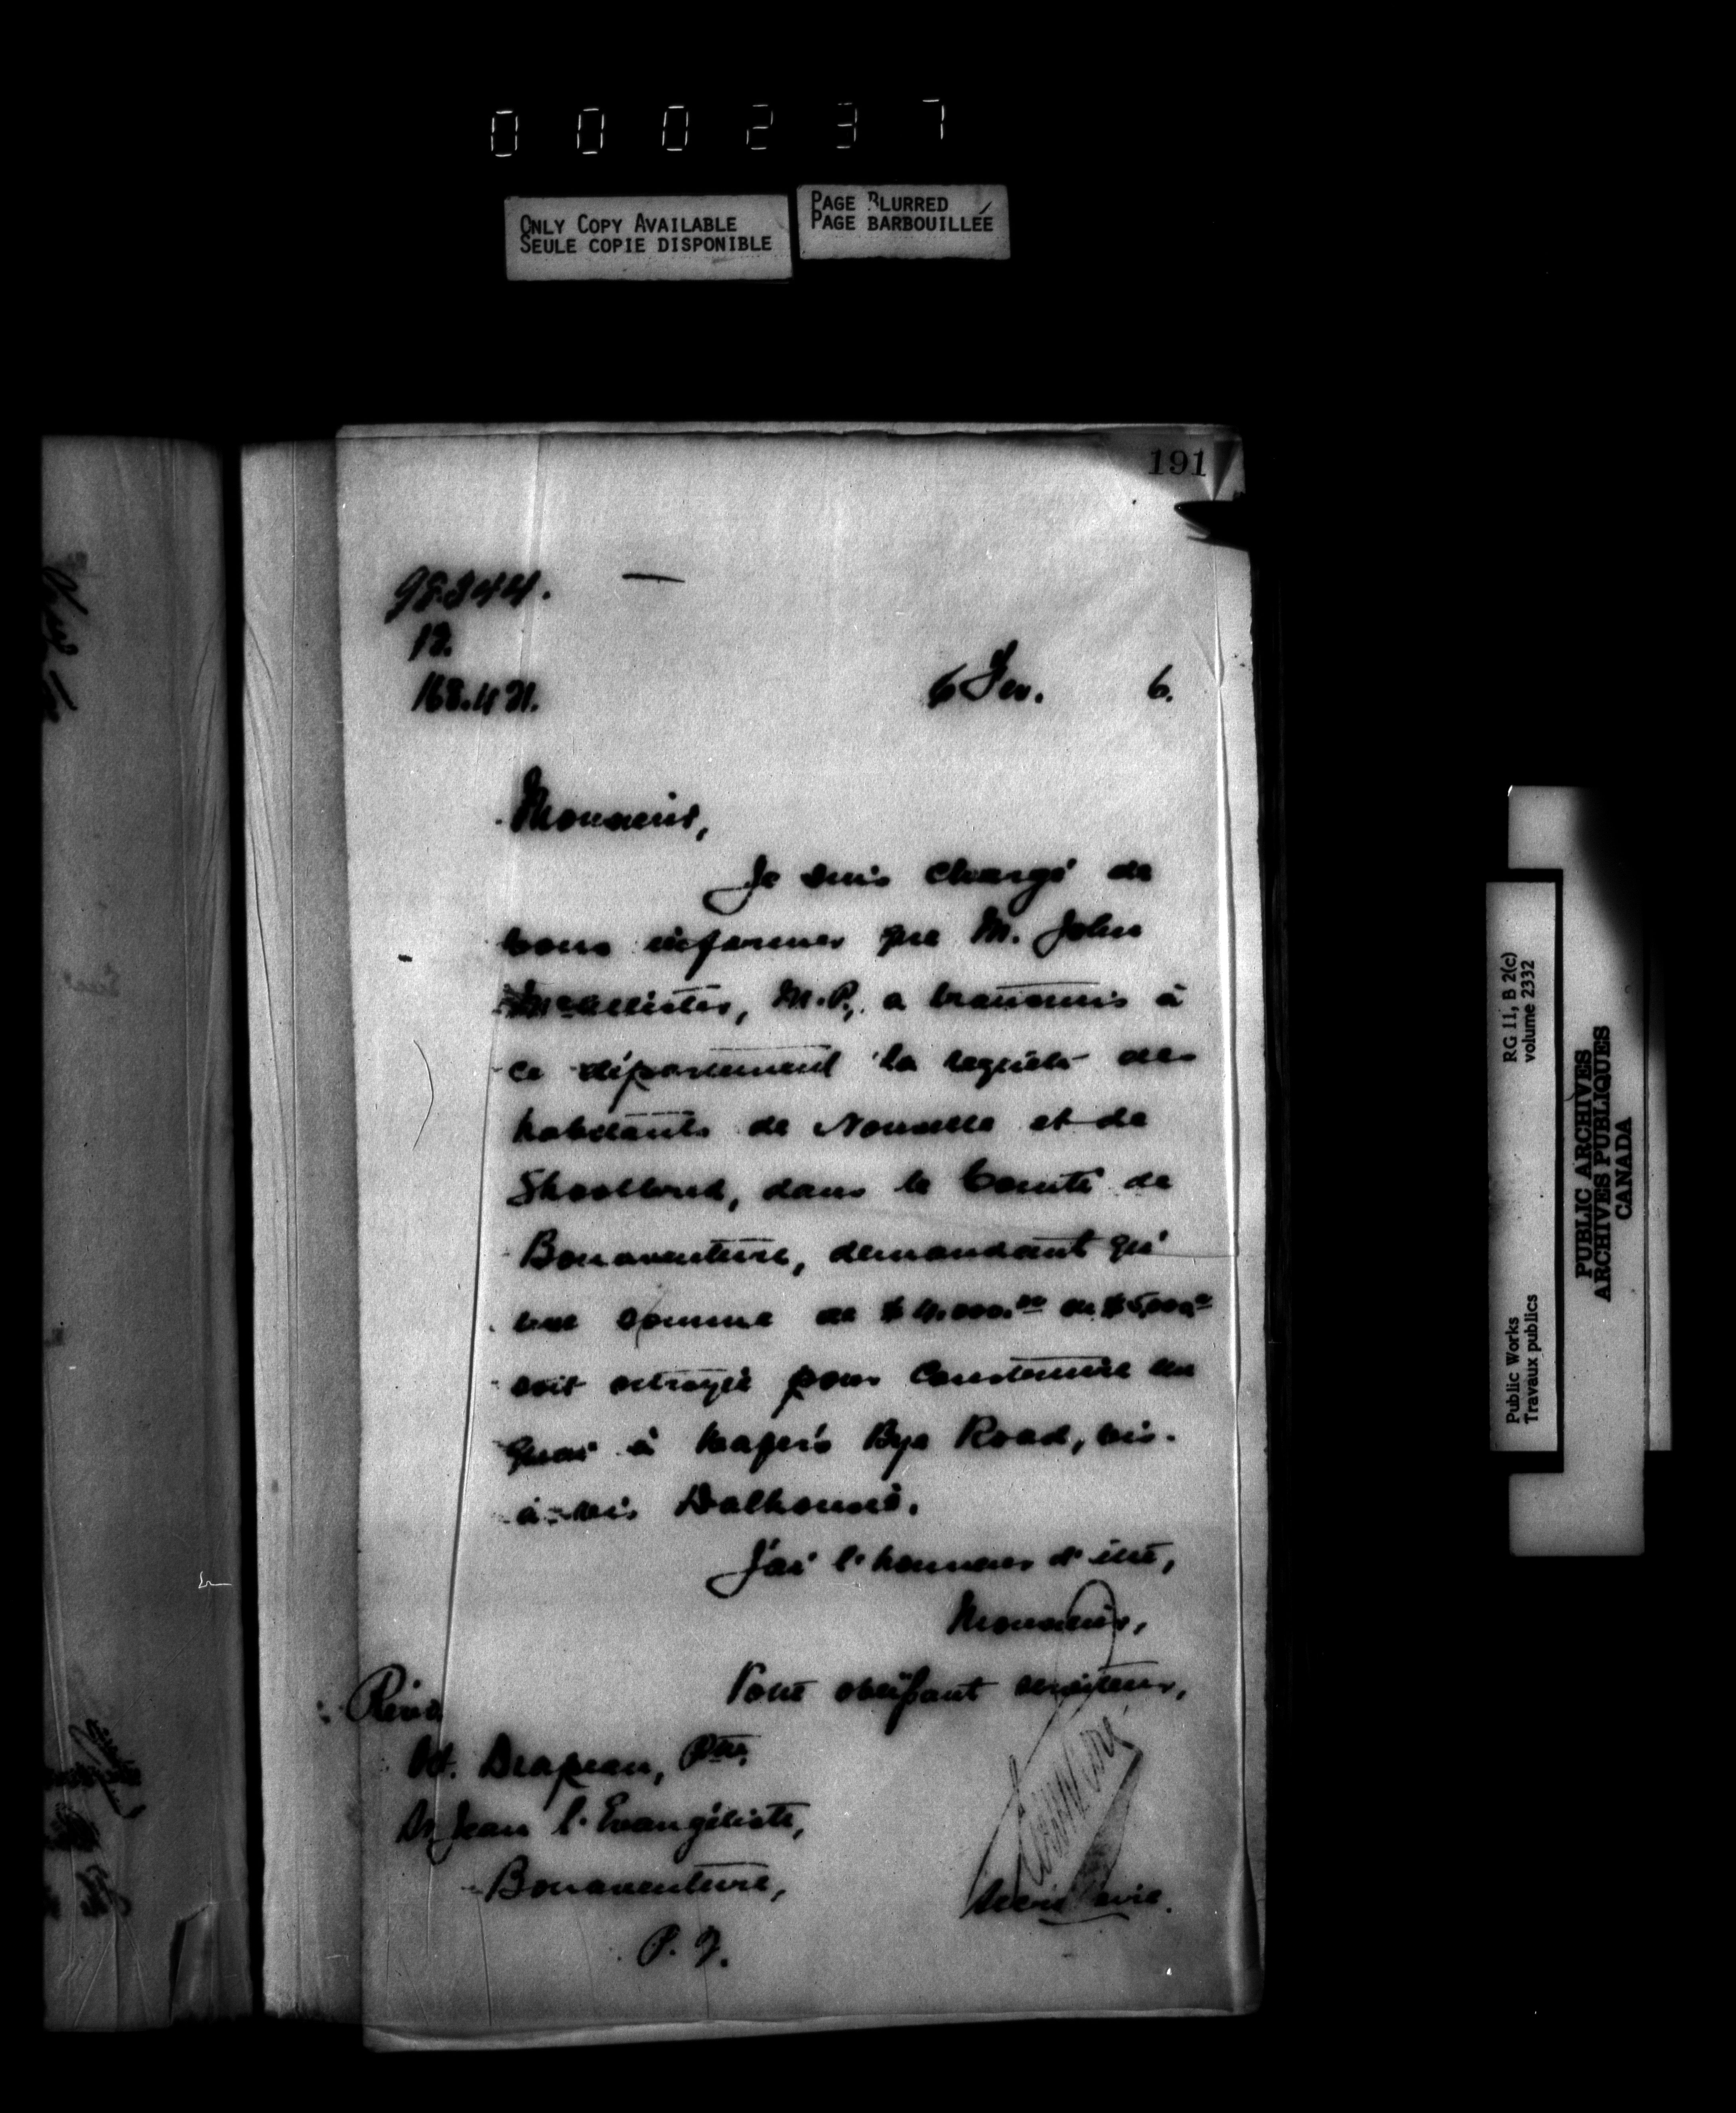 000237
ONLY COPY AVAILABLE
SEULE COPIE DISPONIBLE
PAGE BLURRED
PAGE BARBOUILLÉE
191
98344.
12.
168.421.
6 Fev. 6.
Monsieur,
Je suis chargé de
vous informer que M. John
McAllister, M.P., a transmis à
ce département la requête des
habitants de Nouvelle et de
Shoolbred, dans le Comté de
Bonaventure, demandant qu'
une somme de $4.000.00 ou $5,000.00
soit octroyée pour construire un
quai à Bye Road, vis-
à-vis Dalhousie.
J'ai l'honneur d'être,
Monsieur,
Votre obéissant serviteur,
Révd
Drapeau, Ptre.
St Jean l'Evangéliste,
Bonaventure,
P. Q.
Secrétaire.
RG 11, B 2(c)
volume 2332
Public Works
Travaux publics
PUBLIC ARCHIVES
ARCHIVES PUBLIQUES
CANADA